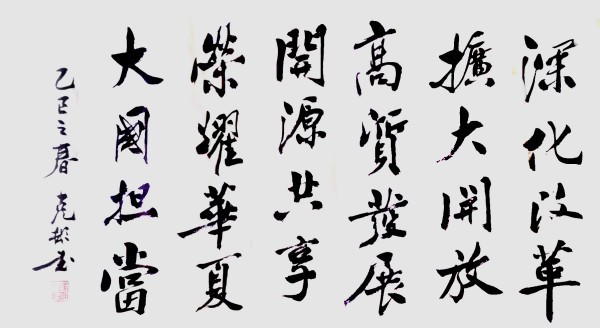 深化改革
擴大開放
高質發展
開源共享
榮耀華夏
大國担當
乙巳之春 克彬书